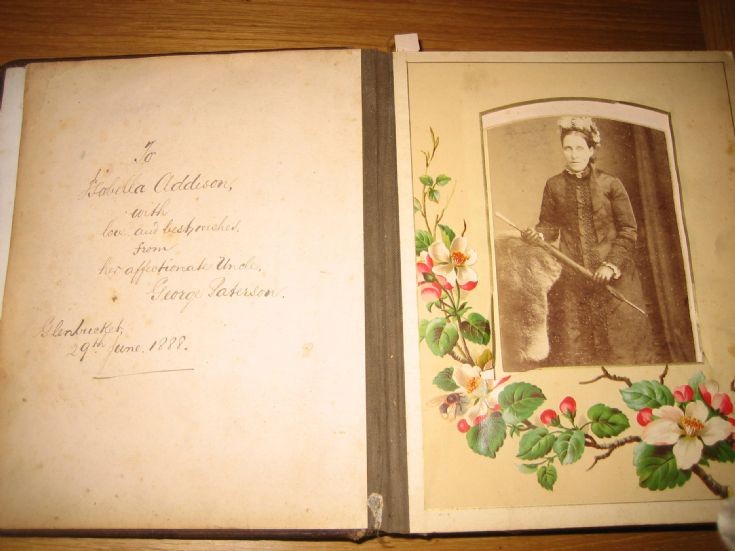 To
Isabella Addison,
with
love and best wishes,
from
her affectionate Uncle,
George Paterson.
Glenbucket,
29th June. 1888.